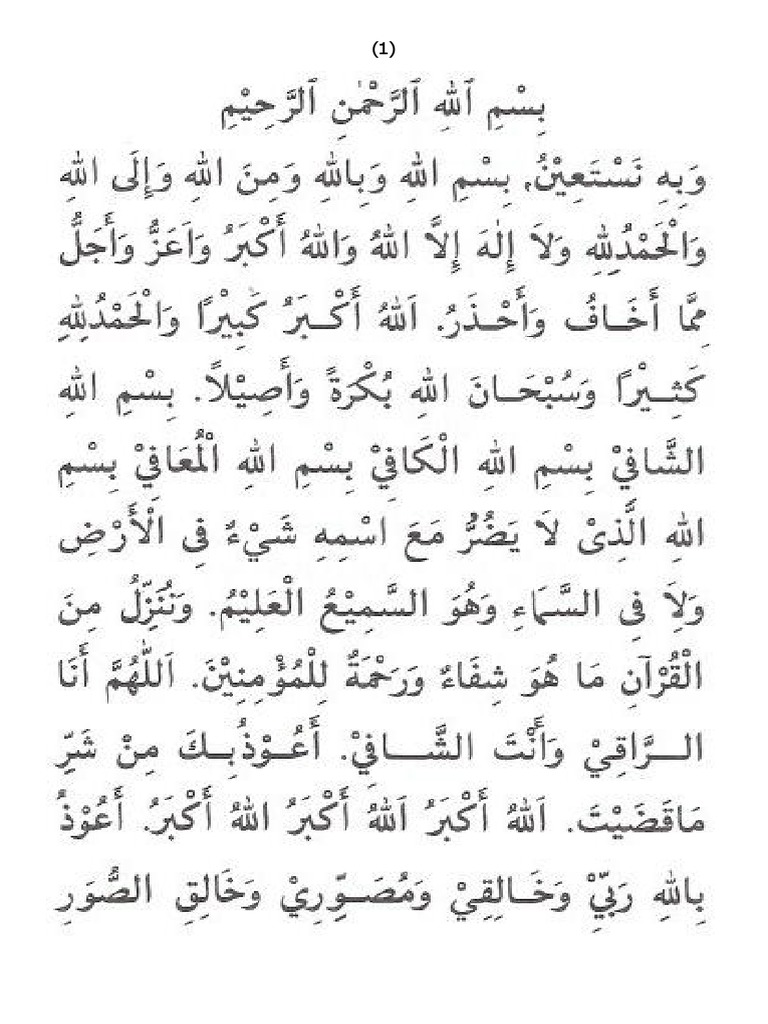 (1)
بِسْمِ ٱللهِ ٱلرَّحْمٰنِ ٱلرَّحِيْمِ
وَبِهِ نَسْتَعِيْنُ، بِسْمِ اللهِ وَبِاللهِ وَمِنَ اللهِ وَإِلَى اللهِ
وَالْحَمْدُلِلهِ وَلاَ إِلٰهَ إِلاَّ اللهُ وَاللهُ أَكْبَرُ وَاَعَزُّ وَأَجَلُّ
مِمَّا أَخَافُ وَأَحْذَرُ. اَللهُ أَكْبَرُ كَبِيْرًا وَالْحَمْدُلِلهِ
كَثِيْرًا وَسُبْحَانَ اللهِ بُكْرَةً وَأَصِيْلاً. بِسْمِ اللهِ
الشَّافِيْ بِسْمِ اللهِ الْكَافِيْ بِسْمِ اللهِ الْمُعَافِيْ بِسْمِ
اللهِ الَّذِىْ لاَ يَضُرُّ مَعَ اسْمِهِ شَيْءٌ فِى الْأَرْضِ
وَلاَ فِى السَّمَاءِ وَهُوَ السَّمِيْعُ الْعَلِيْمُ. وَنُنَزِّلُ مِنَ
الْقُرْآنِ مَا هُوَ شِفَاءٌ وَرَحْمَةٌ لِلْمُؤْمِنِيْنَ. اَللّٰهُمَّ أَنَا
الرَّاقِيْ وَأَنْتَ الشَّافِيْ. أَعُوْذُبِكَ مِنْ شَرِّ
مَاقَضَيْتَ. اَللهُ أَكْبَرُ اَللهُ أَكْبَرُ اللهُ أَكْبَرُ. أَعُوْذُ
بِاللهِ رَبِّيْ وَخَالِقِيْ وَمُصَوِّرِيْ وَخَالِقِ الصُّوَرِ